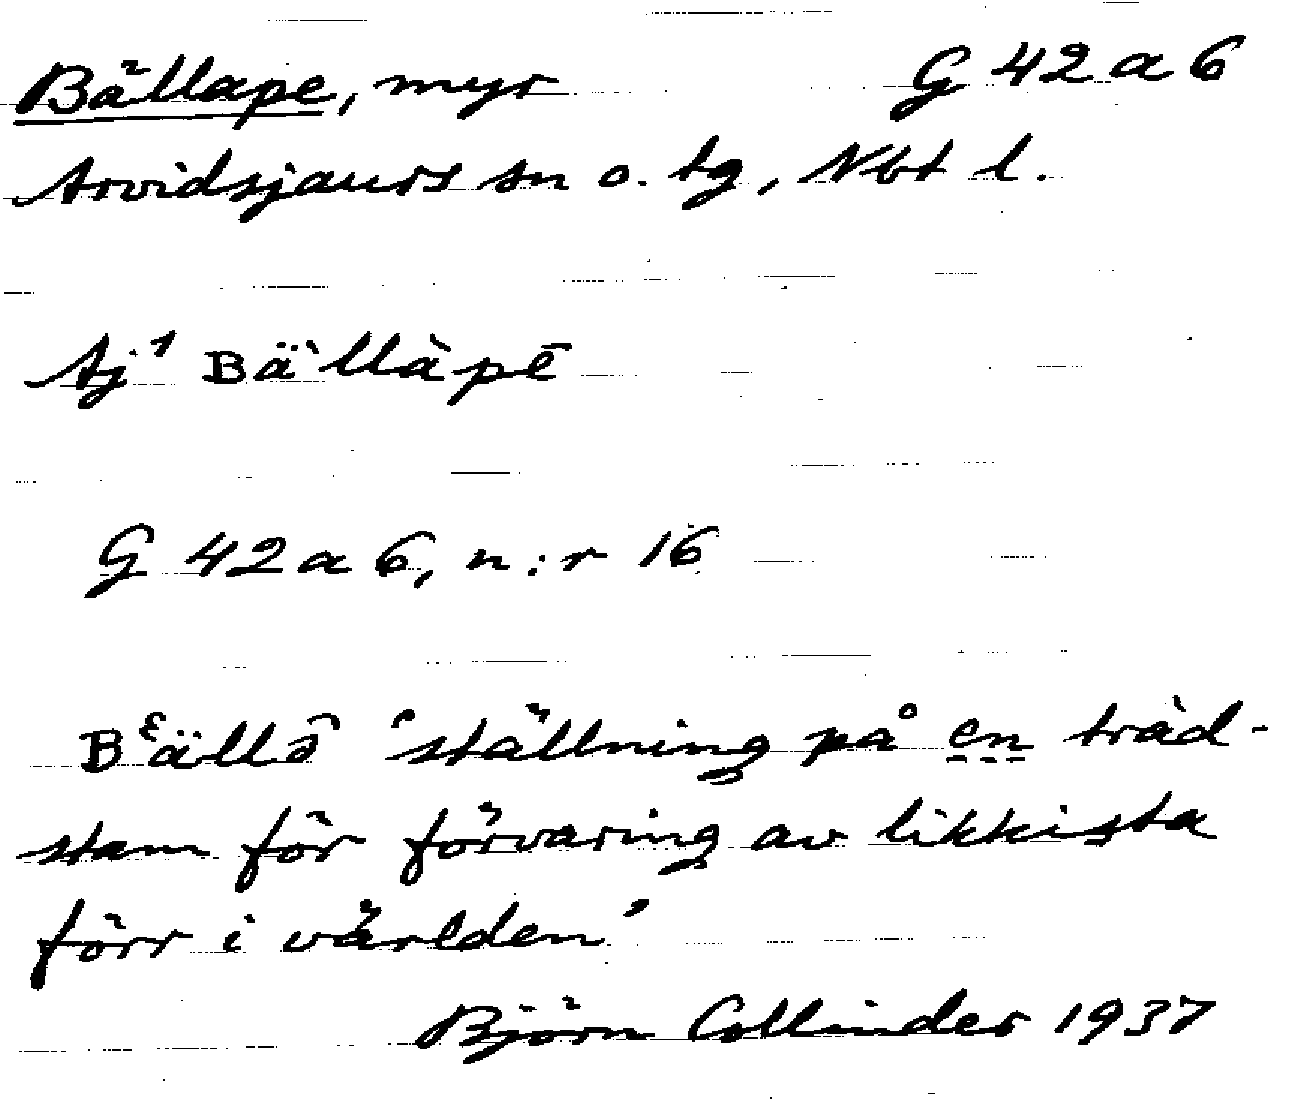 Bällape, myr G 42 a 6
Arvidsjaurs sn o. tg, Nbt l.
Aj¹ Bä̀llàpē
G 42 a 6, n:r 16
Bᵋällə̄ ‘ställning på en träd-
stam för förvaring av likkista
förr i världen’
Björn Collinder 1937